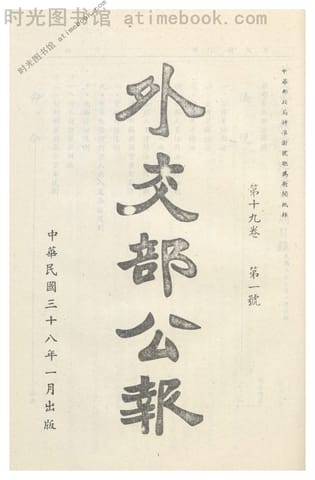 时光图书馆 - www.atimebook.com
时光图书馆 - www.atimebook.com
中華郵政局特准掛號認為新聞紙類
第十九卷 第一號
外交部公報
中華民國三十八年一月出版